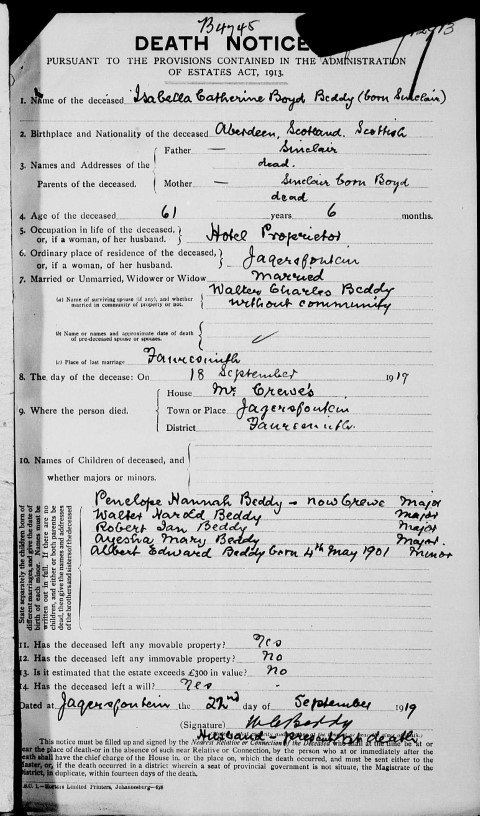 B4745
DEATH NOTICE
PURSUANT TO THE PROVISIONS CONTAINED IN THE ADMINISTRATION
OF ESTATES ACT, 1913.
1. Name of the deceased Isabella Catherine Boyd Beddy (born Sinclair)
2. Birthplace and Nationality of the deceased Aberdeen, Scotland. Scottish
3. Names and Addresses of the Parents of the deceased.
Father — Sinclair
dead.
Mother — Sinclair born Boyd
dead
4. Age of the deceased 61 years 6 months.
5. Occupation in life of the deceased, or, if a woman, of her husband. Hotel Proprietor
6. Ordinary place of residence of the deceased, or, if a woman, of her husband. Jagersfontein
7. Married or Unmarried, Widower or Widow Married
(a) Name of surviving spouse (if any), and whether married in community of property or not. Walter Charles Beddy
without community
(b) Name or names and approximate date of death of pre-deceased spouse or spouses.
(c) Place of last marriage Fauresmith
8. The day of the decease: On 18 September 1919
9. Where the person died.
House Mr Crewe's
Town or Place Jagersfontein
District Fauresmith.
10. Names of Children of deceased, and
whether majors or minors.
State separately the children born of
different marriages, and give the date of
birth of each minor. Names must be
written out in full. If there are no
children, and either or both parents be
dead, then give the names and addresses
of the brothers and sisters of the deceased
Penelope Hannah Beddy - now Crewe Major
Walter Harold Beddy Major
Robert Ian Beddy Major
Ayesha Mary Beddy Major.
Albert Edward Beddy born 4th May 1901 Minor
11. Has the deceased left any movable property? Yes
12. Has the deceased left any immovable property? No
13. Is it estimated that the estate exceeds £300 in value? No
14. Has the deceased left a will? Yes
Dated at Jagersfontein the 22nd day of September 1919
(Signature) W C Beddy
Husband - present at death
This notice must be filled up and signed by the Nearest Relative or Connection of the Deceased who shall at the time be at or
near the place of death-or in the absence of such near Relative or Connection, by the person who at or immediately after the
death shall have the chief charge of the House in, or the place on, which the death occurred, and must be sent either to the
Master, or, if the death occurred in a district wherein a seat of provincial government is not situate, the Magistrate of the
District, in duplicate, within fourteen days of the death.
Limited Printers, Johannesburg